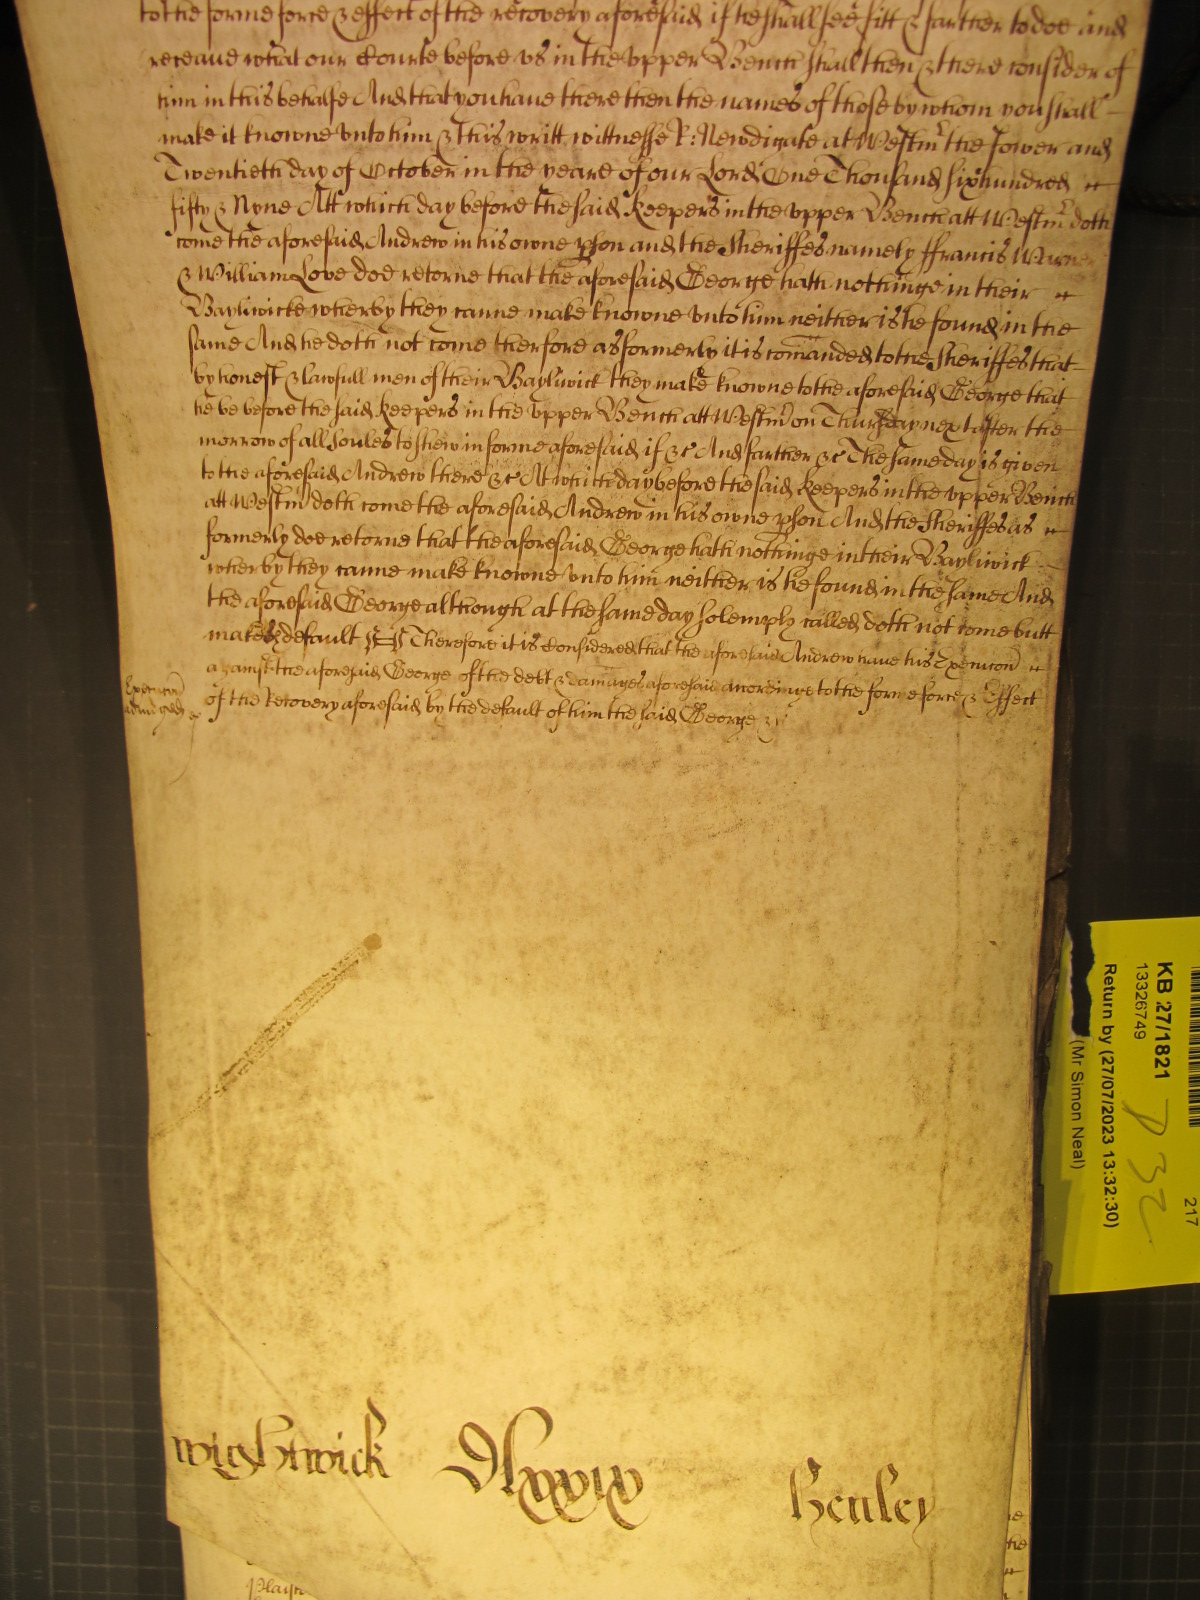 to the forme force & effect of the recovery aforesaid if he shall see fitt & farther to doe and
receaue what our Courte before vs in the vpper Bench shall then & there consider of
him in this behalfe And that you haue there then the names of those by whom you shall
make it knowne vnto him & this writt wittnesse R: Newdigate at Westm the fower and
Twentieth day of October in the yeare of our Lord One Thousand six hundred
fifty & Nyne Att which day before the said keepers in the vpper Bench att Westm doth
come the aforesaid Andrew in his owne pson and the Sheriffes namely ffrancis Warner
& William Love doe retorne that the aforesaid George hath nothinge in their
Bayliwicke wherby they canne make knowne vnto him neither is he found in the
same And he doth not come therfore as formerly it is comanded to the Sheriffes that
by honest & lawfull men of their Bayliwick they make knowne to the aforesaid George that
he be before the said keepers in the vpper Bench att Westm on Thursday next after the
morrow of all Soules to shew in forme aforesaid if &c And farther &c The same day is given
to the aforesaid Andrew there &c At which day before the said keepers in the vpper Bench
att Westm doth come the aforesaid Andrew in his owne pson And the Sheriffes as
formerly doe retorne that the aforesaid George hath nothinge in their Bayliwick
wherby they canne make knowne vnto him neither is he found in the same And
the aforesaid George although at the same day solemply called doth not come butt
makes default Therefore it is Considered that the aforesaid Andrew haue his Execucon
against the aforesaid George of the debt & damages aforesaid accordinge to the forme force & Effect
of the Recovery aforesaid by the default of him the said George &c
Execucon
adiudged
wightwick
Henley
KB 27/1821
13326749
Return by (27/07/2023 13:32:30)
(Mr Simon Neal)
217
P 32